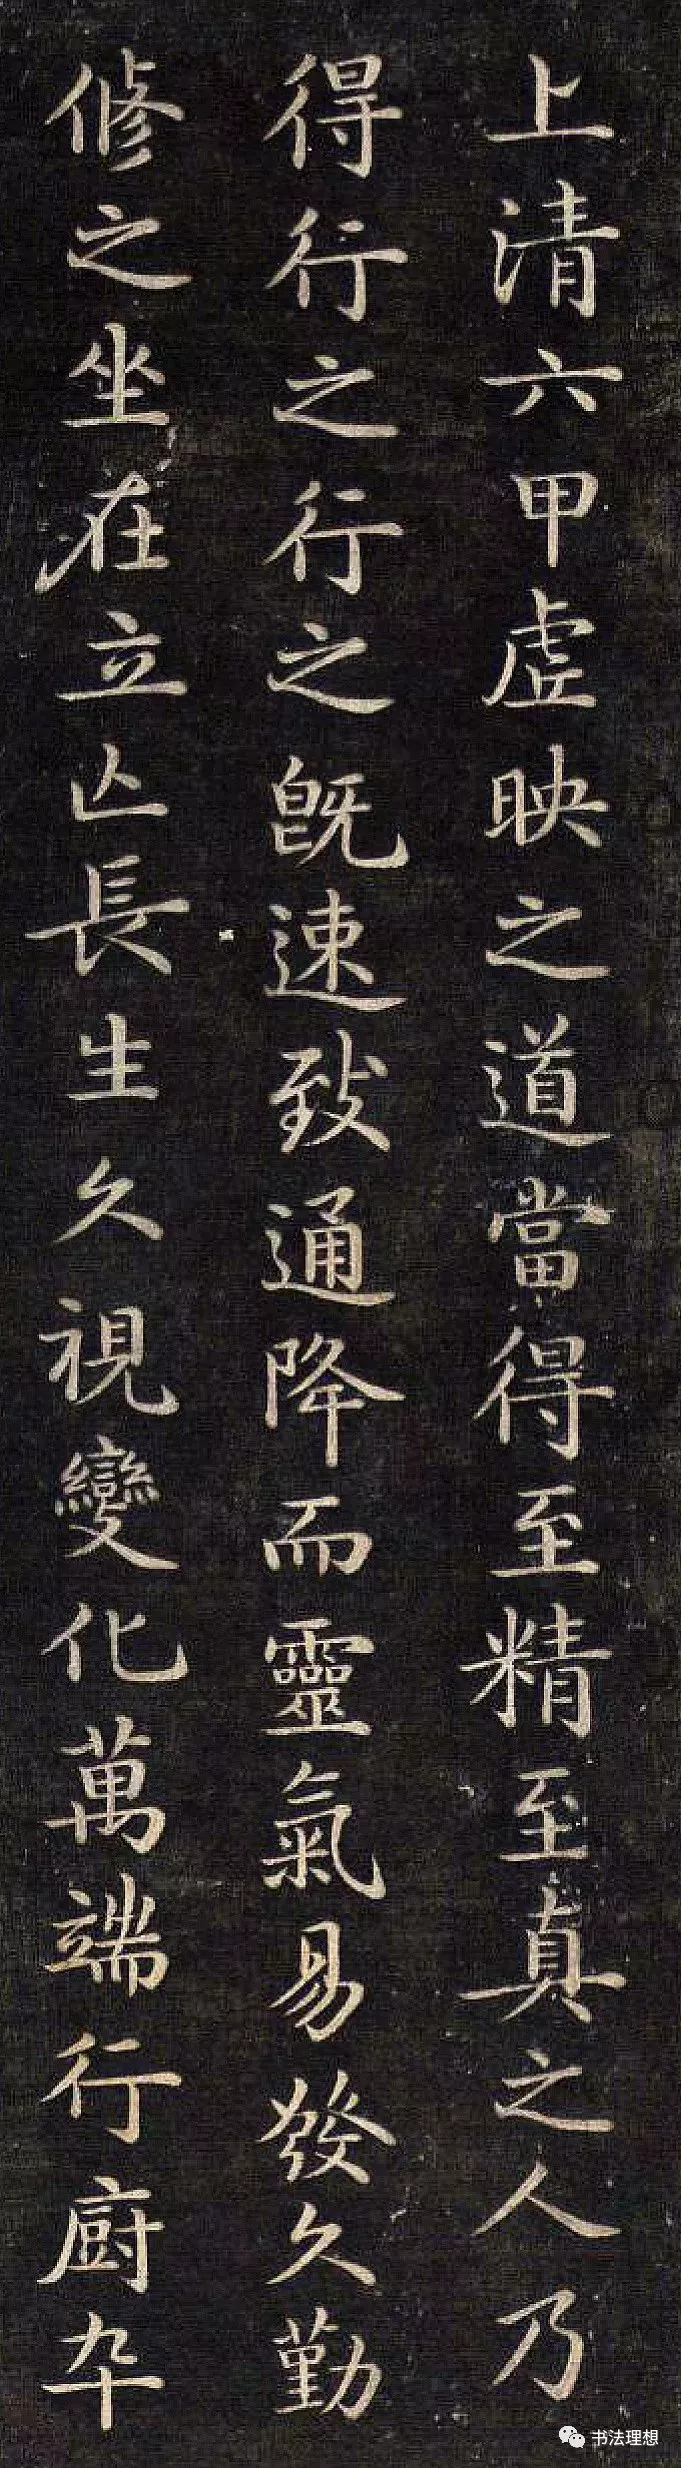 上清六甲虚映之道當得至精至真之人乃
得行之行之既速致通降而靈氣易發久勤
修之坐在立亾長生久視變化萬端行廚卒
书法理想